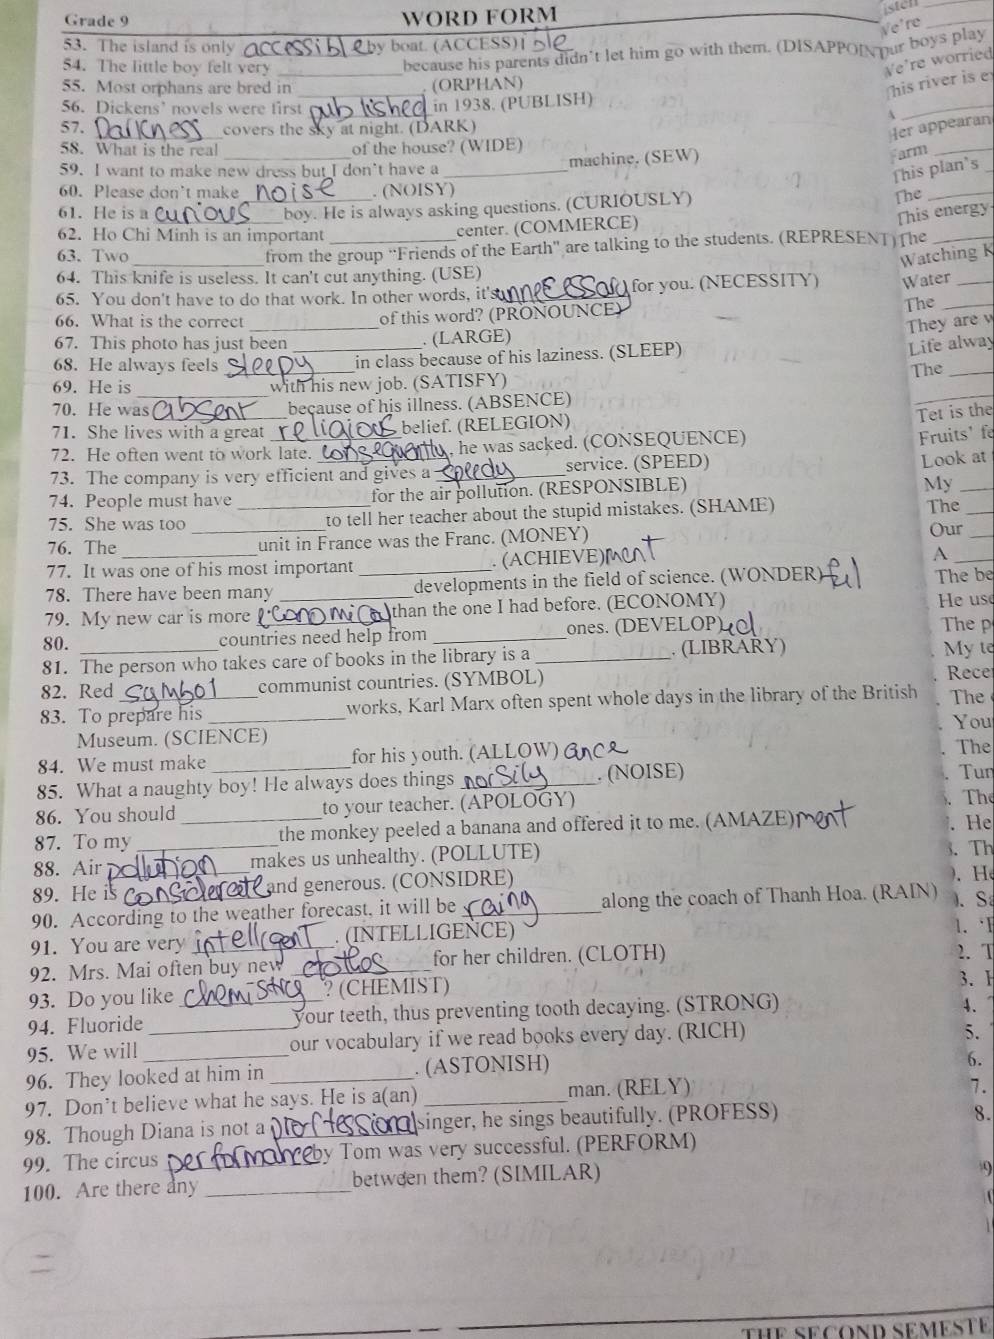 Grade 9
WORD FORM
53. The island is only accessible by boat. (ACCESS) ible
54. The little boy felt very ____________ because his parents didn't let him go with them. (DISAPPOIN
55. Most orphans are bred in ____________. (ORPHAN)
56. Dickens' novels were first published in 1938. (PUBLISH)
57. Darkness covers the sky at night. (DARK)
58. What is the real ____________ of the house? (WIDE)
59. I want to make new dress but I don't have a ____________ machine. (SEW)
60. Please don't make noise. (NOISY)
61. He is a curious boy. He is always asking questions. (CURIOUSLY)
62. Ho Chi Minh is an important ____________ center. (COMMERCE)
63. Two ____________ from the group "Friends of the Earth" are talking to the students. (REPRESENT)
64. This knife is useless. It can't cut anything. (USE)
65. You don't have to do that work. In other words, it's unnecessary for you. (NECESSITY)
66. What is the correct ____________ of this word? (PRONOUNCE)
67. This photo has just been ____________. (LARGE)
68. He always feels sleepy in class because of his laziness. (SLEEP)
69. He is ____________ with his new job. (SATISFY)
70. He was absent because of his illness. (ABSENCE)
71. She lives with a great religious belief. (RELEGION)
72. He often went to work late. consequently, he was sacked. (CONSEQUENCE)
73. The company is very efficient and gives a speedy service. (SPEED)
74. People must have ____________ for the air pollution. (RESPONSIBLE)
75. She was too ____________ to tell her teacher about the stupid mistakes. (SHAME)
76. The ____________ unit in France was the Franc. (MONEY)
77. It was one of his most important ____________. (ACHIEVE) ment
78. There have been many ____________ developments in the field of science. (WONDER) ful
79. My new car is more economical than the one I had before. (ECONOMY)
80. ____________ countries need help from ____________ ones. (DEVELOP) ed
81. The person who takes care of books in the library is a ____________. (LIBRARY)
82. Red symbol communist countries. (SYMBOL)
83. To prepare his ____________ works, Karl Marx often spent whole days in the library of the British
Museum. (SCIENCE)
84. We must make ____________ for his youth. (ALLOW) ance
85. What a naughty boy! He always does things norsily. (NOISE)
86. You should ____________ to your teacher. (APOLOGY)
87. To my ____________ the monkey peeled a banana and offered it to me. (AMAZE) ment
88. Air pollution makes us unhealthy. (POLLUTE)
89. He is considerate and generous. (CONSIDRE)
90. According to the weather forecast, it will be raing along the coach of Thanh Hoa. (RAIN)
91. You are very intelligent. (INTELLIGENCE)
92. Mrs. Mai often buy new clothos for her children. (CLOTH)
93. Do you like chemistry? (CHEMIST)
94. Fluoride ____________ your teeth, thus preventing tooth decaying. (STRONG)
95. We will ____________ our vocabulary if we read books every day. (RICH)
96. They looked at him in ____________. (ASTONISH)
97. Don't believe what he says. He is a(an) ____________ man. (RELY)
98. Though Diana is not a proffessional singer, he sings beautifully. (PROFESS)
99. The circus performance by Tom was very successful. (PERFORM)
100. Are there any ____________ between them? (SIMILAR)
We're
our boys play
We're worried
This river is
Her appearan
Farm
This plan's
The
This energy
The
Watching
Water
The
They are
Life alway
The
Tet is the
Fruits'
Look at
My
The
Our
A
The be
He use
The
My te
Rece
The
You
The
Tun
The
He
Th
He
2.
3.
4.
5.
6.
7.
8.
THE SECOND SEMESTE